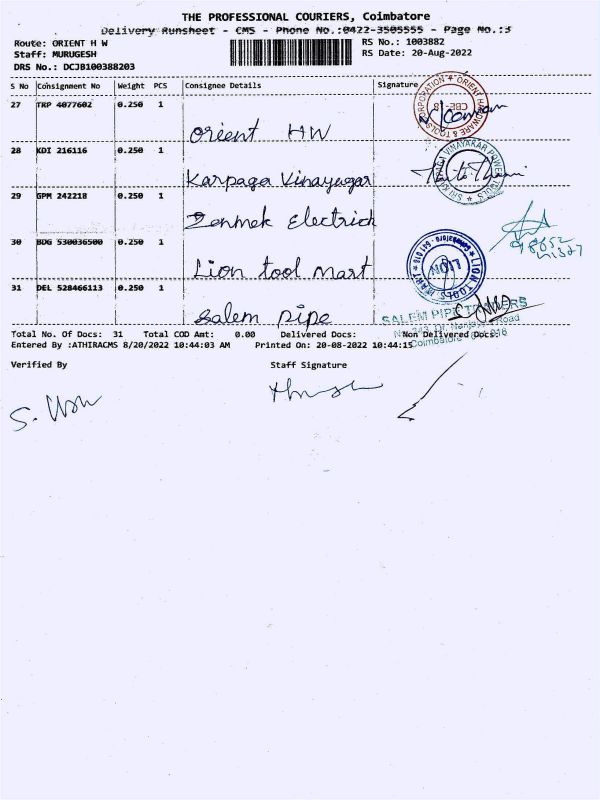 THE PROFESSIONAL COURIERS, Coimbatore
Delivery Runsheet - CMS - Phone No.:0422-3505555 - Page No.:3
Route: ORIENT H W
RS No.: 1003882
Staff: MURUGESH
RS Date: 20-Aug-2022
DRS No.: DCJB100388203
S No Consignment No Weight PCS Consignee Details Signature
27 TRP 4077602 0.250 1
Orient HW
28 KDI 216116 0.250 1
Karpaga Vinayagar
29 GPM 242218 0.250 1
Zenmek Electrich
30 BDG 530036500 0.250 1
Lion tool mart
31 DEL 528466113 0.250 1
Salem pipe
SALEM PIPE TRADERS
Total No. Of Docs: 31 Total COD Amt: 0.00 Delivered Docs: Non Delivered Docs:
Entered By :ATHIRACMS 8/20/2022 10:44:03 AM Printed On: 20-08-2022 10:44:15
Verified By Staff Signature